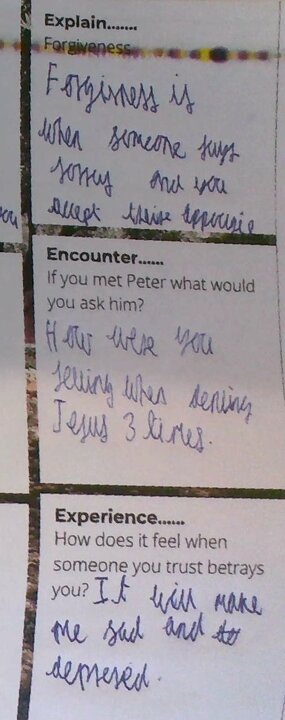 Explain.......
Forgiveness
Forgivness is
when someone says
sorry and you
accept
Encounter......
If you met Peter what would
you ask him?
How were you
felling when dening
Jesus 3 times.
Experience......
How does it feel when
someone you trust betrays
you? It will make
me sad and
depresed.